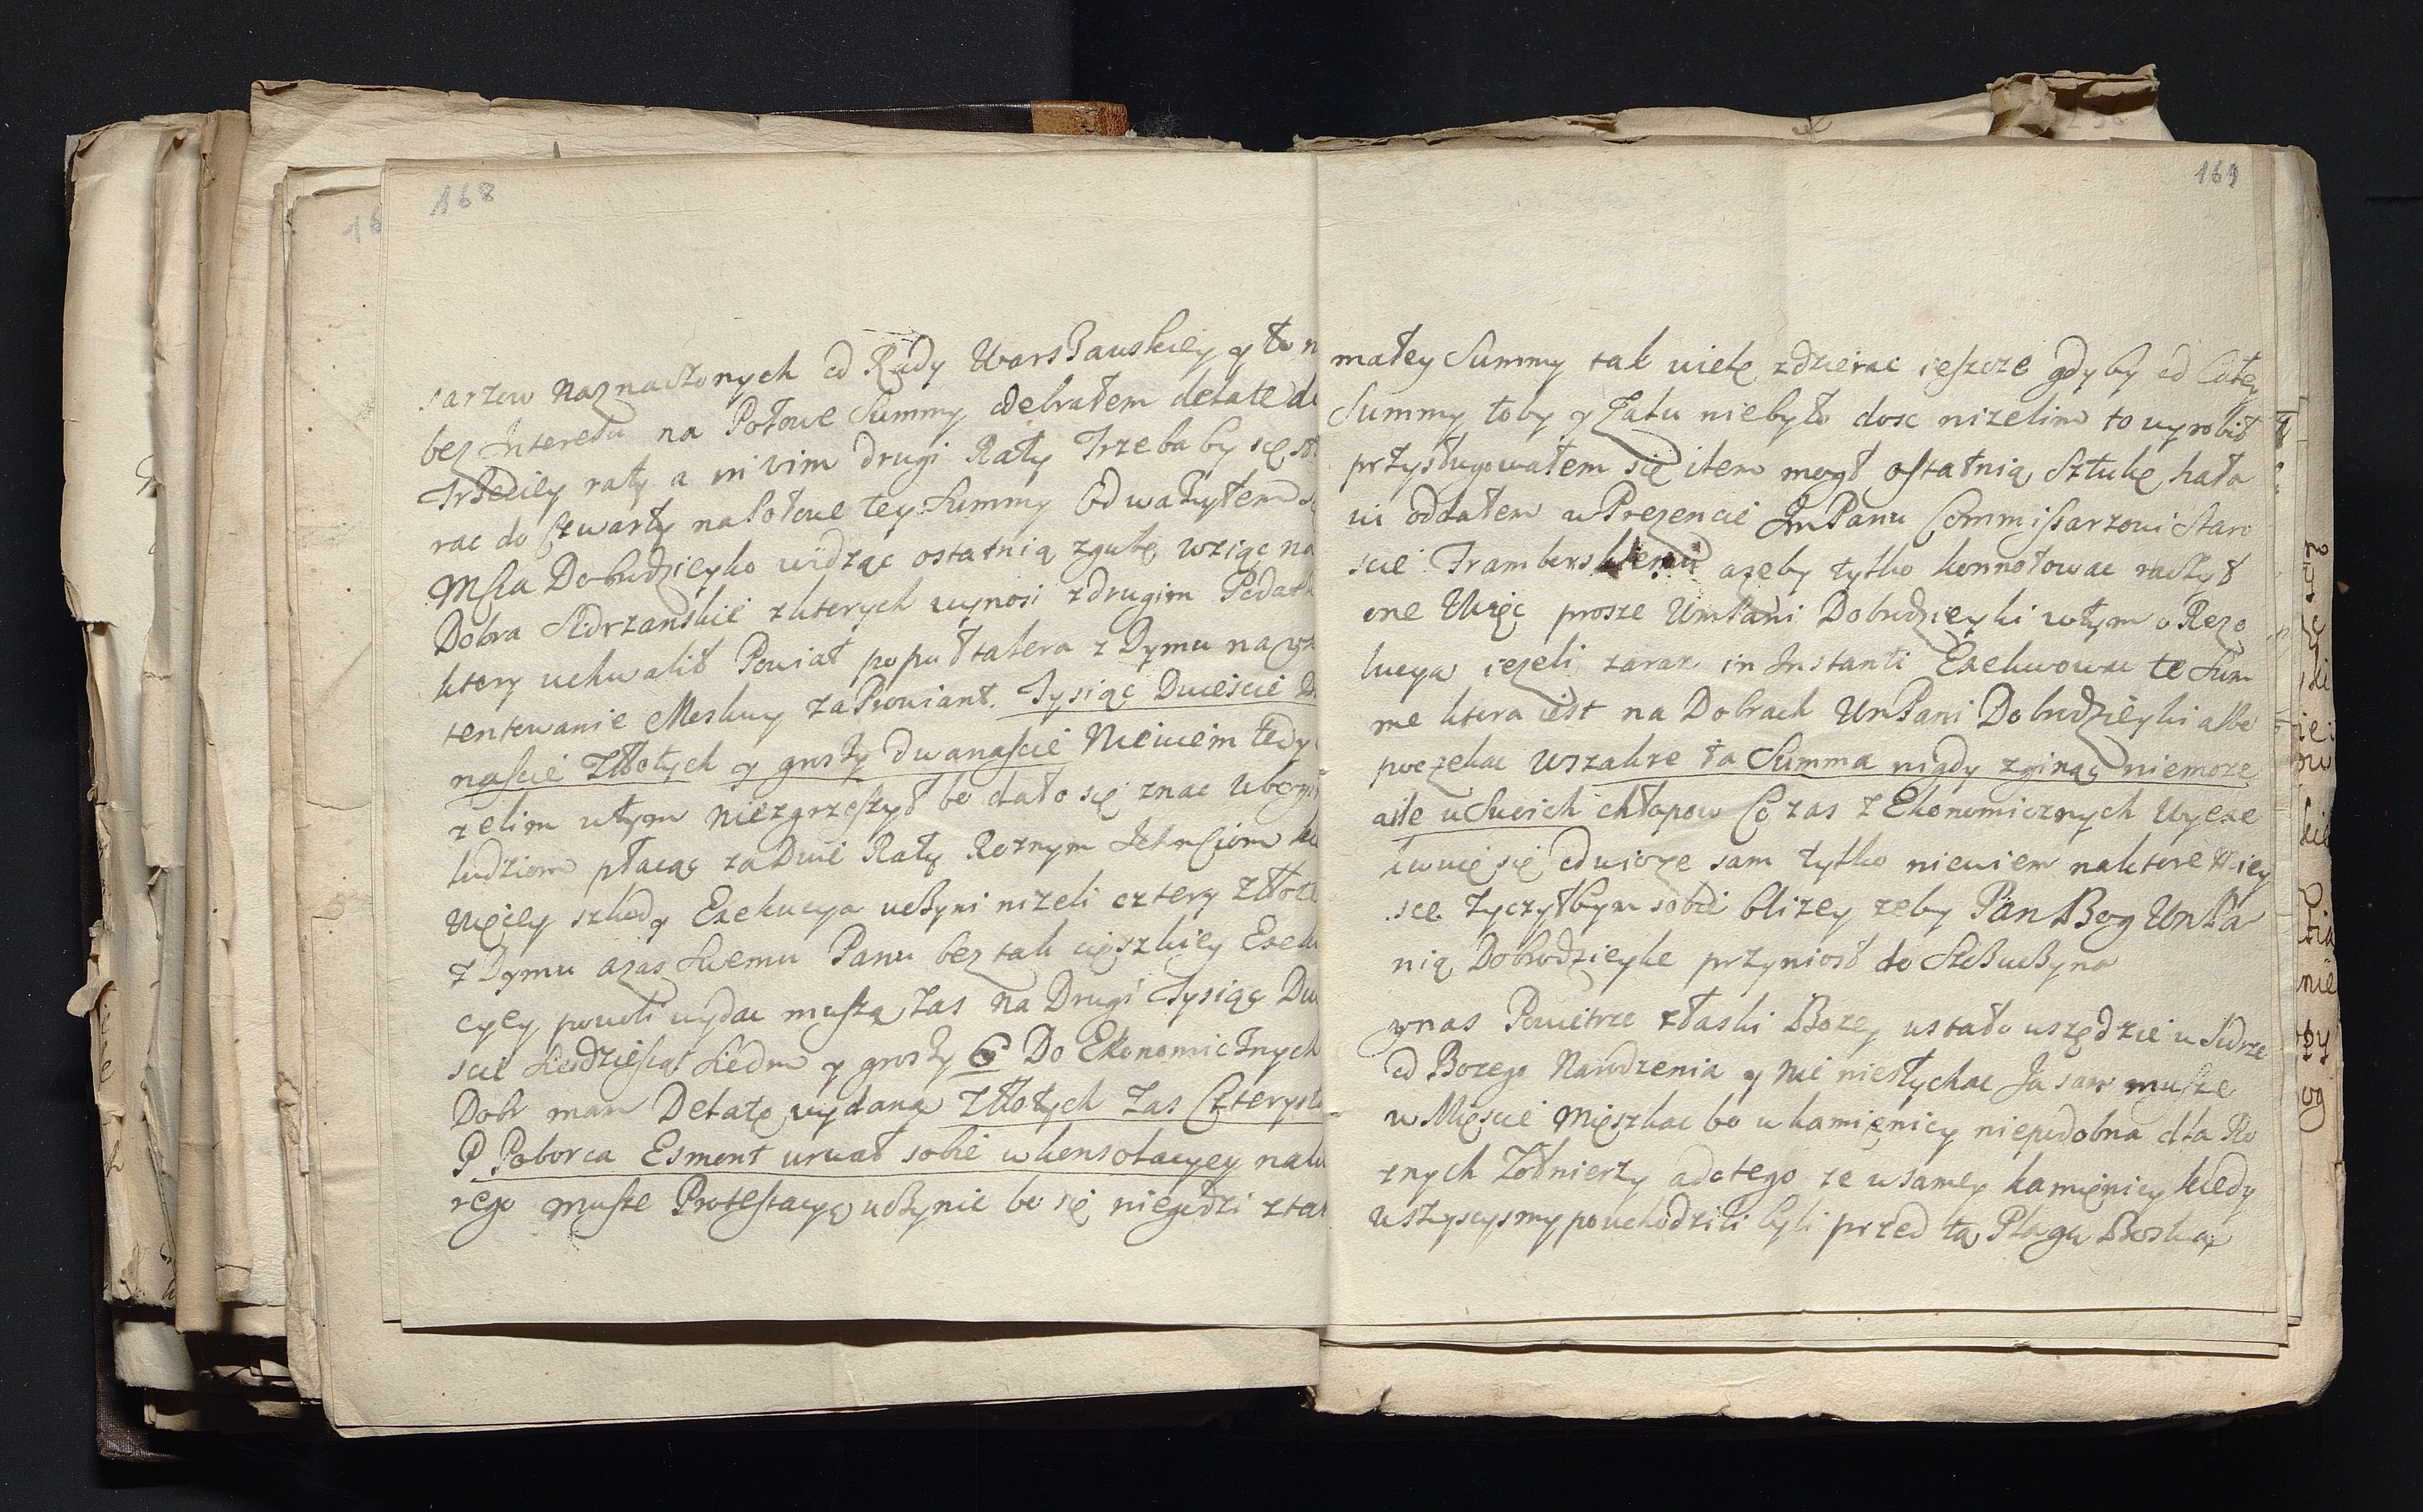 168
sarzow naznaczonych od Rady Warszauskiey y to n
bez Interesu na Połowe Summy odebrałem delate d
Trzeciey raty a ni vim drugi Raty Trzeba by się st
rac do Czwarty na Połowe tey Summy Odważyłem
MSCia Dobudzieyko vidząc ostatnią zgubę wziąc na
Dobra Sidrzanskie zktorych wynosi zdrugim Podatk
ktory uchwalił Powiat po puł talera z Dymu na
tentowanie Meskwy za Prowiant. Tysiąc Dwiescie
nascie Złłotych y groszy dwanascie Niewiem tedy
zelim wtym niezgrzeszył bo dało się znac ubogi
ludziom płacąc za Dwie Raty Roznym
Więcey szkody Exekucya uczyni nizeli cztery złłote
z Dymu azas swemu Panu bez tak cięszkiey Exek
cyey powoli wydac muszą Zas na Drugi Tysiąc Dw
scie siedziesiąt siedm y groszy 6 Do Ekonomicznych
Dobr mam Delatę wydaną Złłotych zas Czterysta
P Poborca Esmont urwał sobie wkensolacyey na
rego musze Protestacyą uczynic bo się niegodzi z tak
169
małey Summy tak wiele zdzierac ieszcze gdyby od Całey
Summy toby y Żalu niebyło dosc nizelim to wyrobił
przysługowałem się ilem mogł ostatnią Sztukę hata
wi oddałem w Prezencie JmPanu Commissarzowi Staro
scie azeby tylko konnotowac raczył
one Więc prosze UmPani Dobudzieyki wtym o Rezo
lucyą iezeli zaraz in Instanti Exekwowac te Sum
me ktora iest na Dobrach UmPani Dobudzieyki albo
poczekac Wszakze ta Summa nigdy zginąc niemoze
alle u Swoich chłapow Co zas z Ekonomicznych Wyexe
kwuię się odwioze sam tylko niewiem naktore Miey
sce. Zyczyłbym sobie blizey zeby Pan Bog UmPa
nią Dobudzieyke przyniosł do Szczuczyna
ynas Powietrze złaski Bozey ustało wszędzie w Sidrze
od Bozego Narodzenia y nie niesłychac Ja sam musze
w Miescie Mięszkac bo w kamięnicy niepodobna dla Ro
znych Zołnierzy adotego ze wsamey kamięnicy kiedy
wszyscysmy powchodzili byli przed tą Plagą Boską